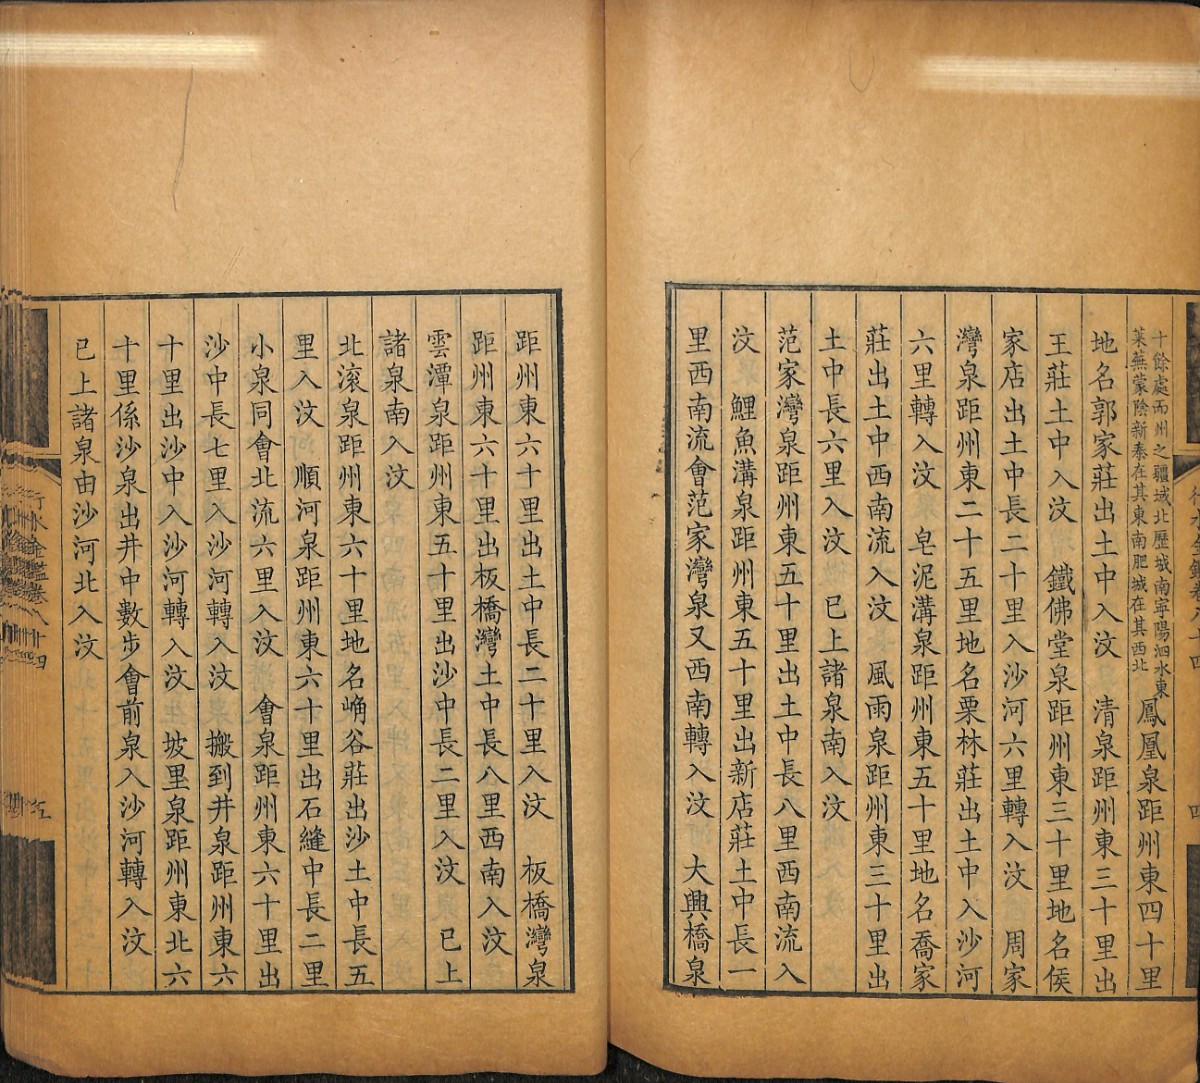 十餘處而州之疆域北歷城南寧陽泗水東
萊蕪蒙陰新泰在其東南肥城在其西北
鳳凰泉距州東四十里
地名郭家莊出土中入汶　清泉距州東三十里出
王莊土中入汶　鐵佛堂泉距州東三十里地名侯
家店出土中長二十里入沙河六里轉入汶　周家
灣泉距州東二十五里地名栗林莊出土中入沙河
六里轉入汶　皂泥溝泉距州東五十里地名喬家
莊出土中西南流入汶　風雨泉距州東三十里出
土中長六里入汶　已上諸泉南入汶
范家灣泉距州東五十里出土中長八里西南流入
汶　鯉魚溝泉距州東五十里出新店莊土中長一
里西南流會范家灣泉又西南轉入汶　大興橋泉
距州東六十里出土中長二十里入汶　板橋灣泉
距州東六十里出板橋灣土中長八里西南入汶
雲潭泉距州東五十里出沙中長二里入汶　已上
諸泉南入汶
北滚泉距州東六十里地名崅谷莊出沙土中長五
里入汶　順河泉距州東六十里出石縫中長二里
小泉同會北流六里入汶　會泉距州東六十里出
沙中長七里入沙河轉入汶　搬到井泉距州東六
十里出沙中入沙河轉入汶　坡里泉距州東北六
十里係沙泉出井中數步會前泉入沙河轉入汶
已上諸泉由沙河北入汶
行水金鑑卷八十四